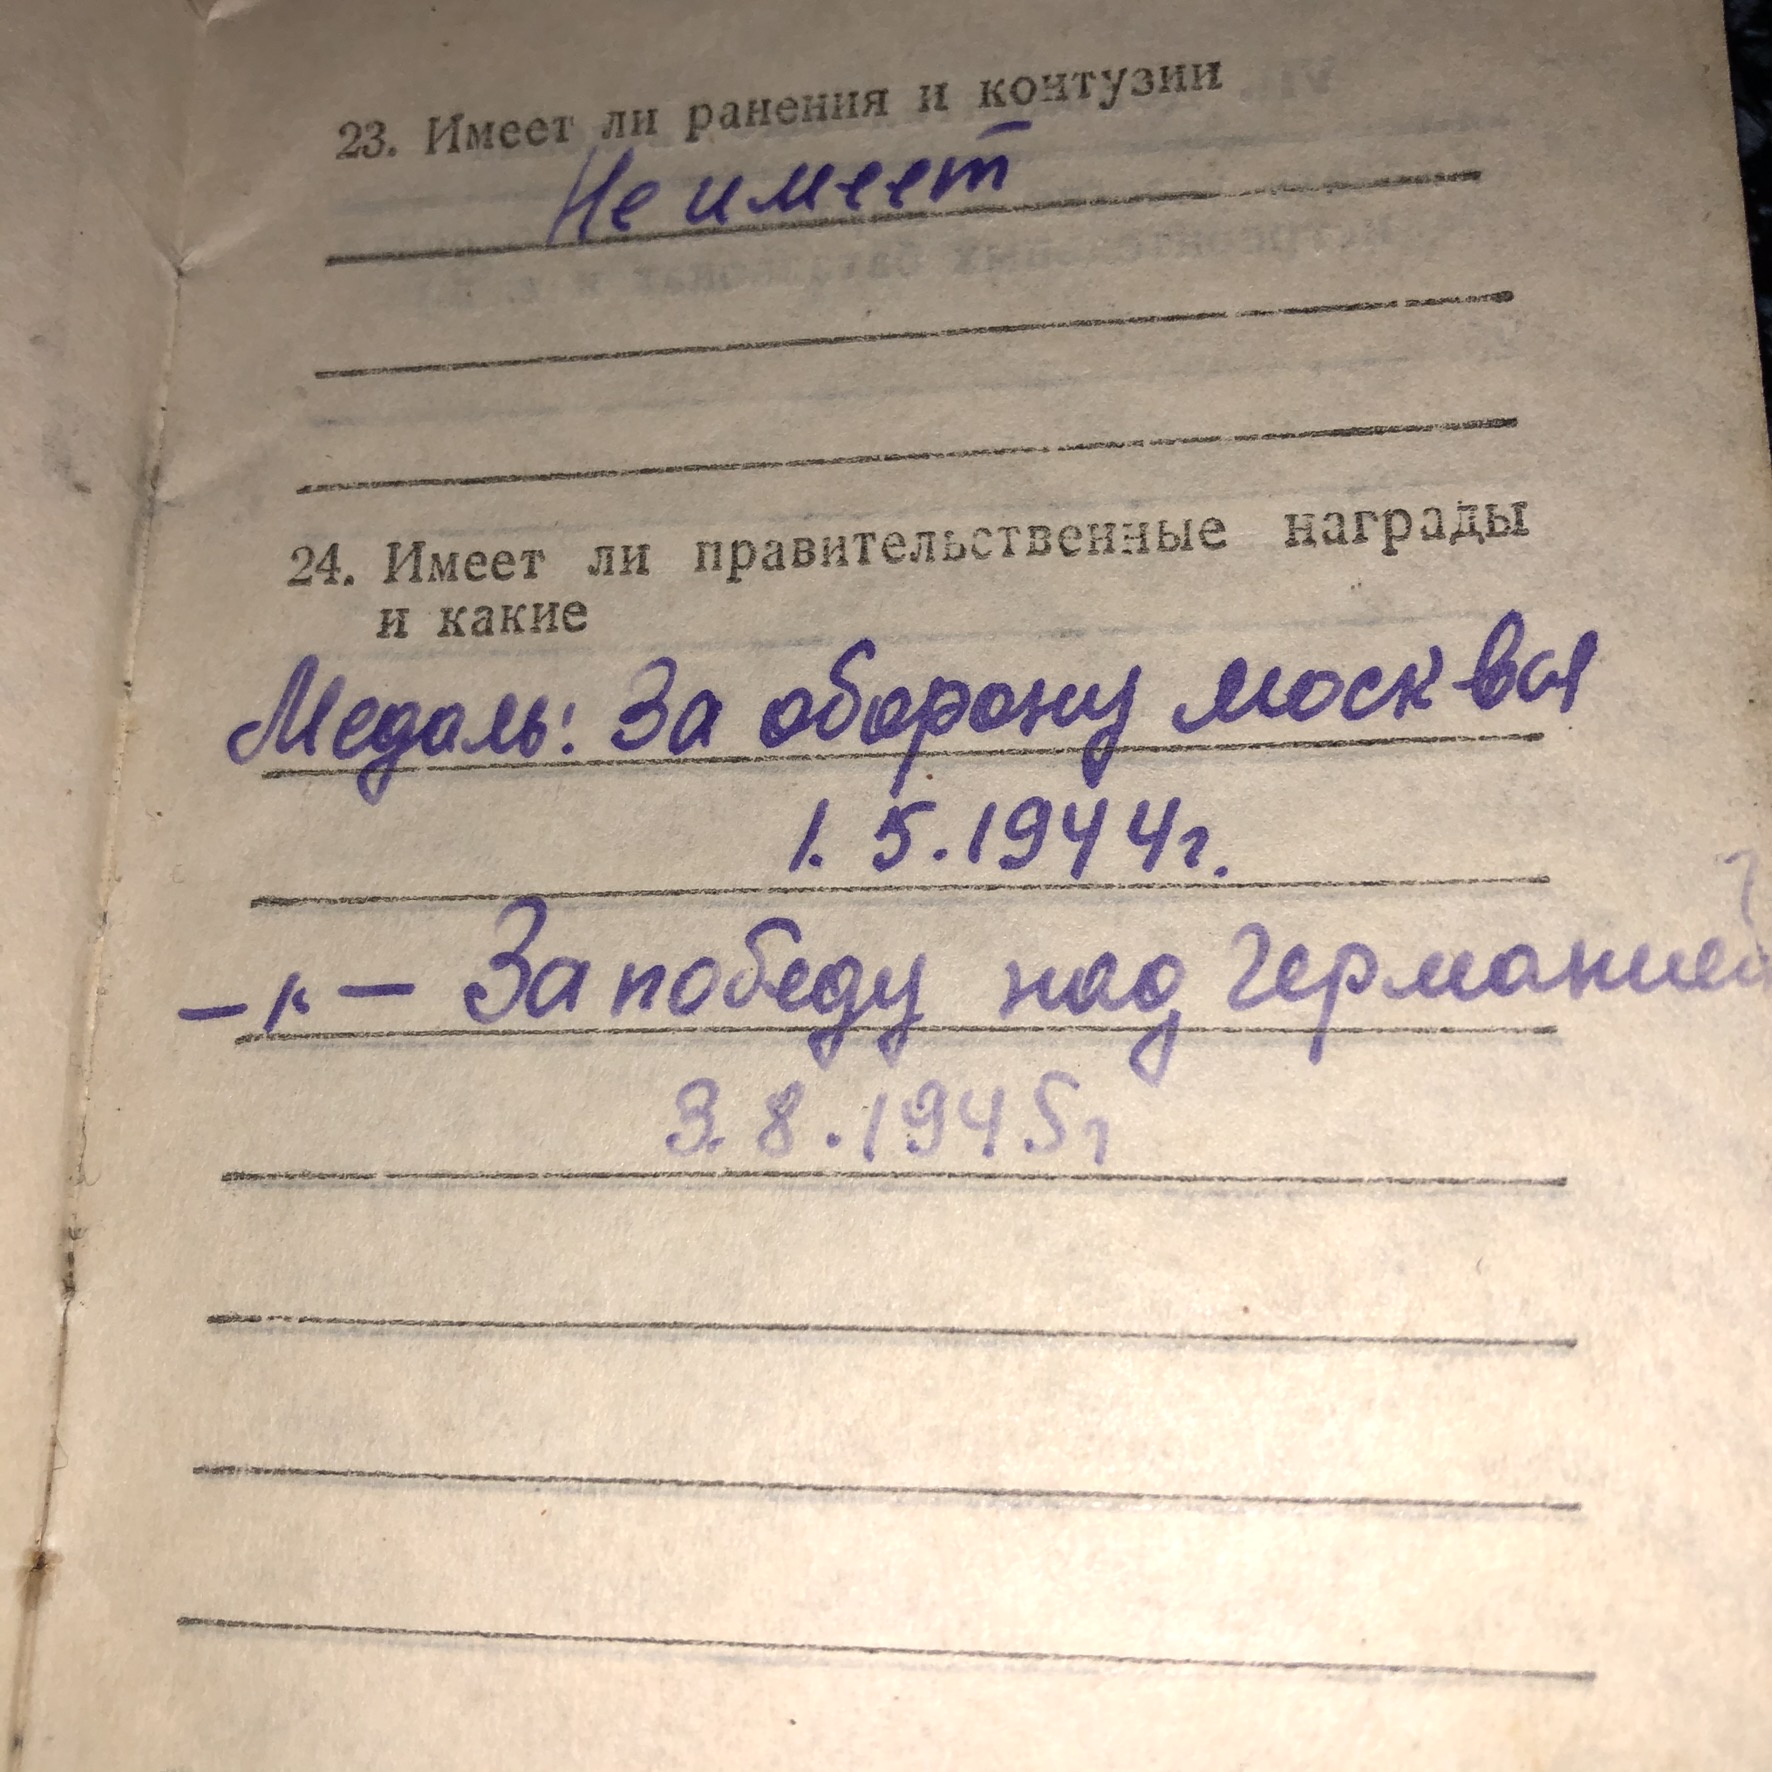 23. Имеет ли ранения и контузии
Не имеет
24. Имеет ли правительственные награды
и какие
Медаль: За оборону москвы
1. 5. 1944г.
–"– За победу над Германией
3. 8. 1945г